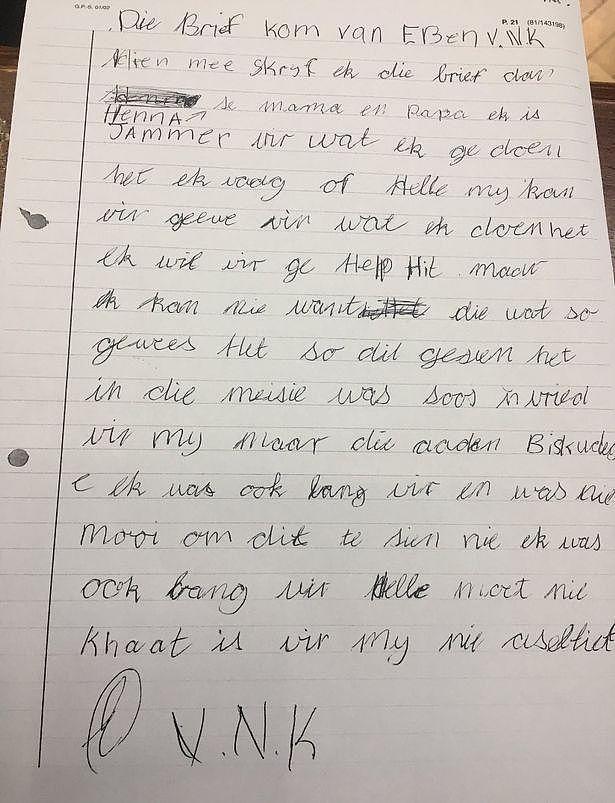 G.P.-S. 01/02
P. 21 (81/143198)
Die Brief kom van EBen V.N.K
Hien mee skryf ek die brief dan
Henna se mama en Papa ek is
JAMMER vir wat ek ge doen
het ek vadg of Helle my kan
vir geewe vir wat ek doen het
Ek wil vir ge Help Hit maar
ek kan nie want die wat so
gewees Het so dit gesien het
in die meisie was soos in vried
vir my maar die aaden Biskude
e ek was ook bang vir en was nie
mooi om dit te sien nie ek was
ook bang vir Helle moet nie
Khaat is vir my nie aseblief
V.N.K